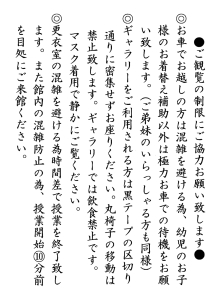 ●ご観覧の制限にご協力お願い致します●
◎お車でお越しの方は混雑を避ける為、幼児のお子
様のお着替え補助以外は極力お車での待機をお願
い致します。（ご弟妹のいらっしゃる方も同様）
◎ギャラリーをご利用される方は黒テープの区切り
通りに密集せずお座りください。丸椅子の移動は
禁止致します。ギャラリーでは飲食禁止です。
マスク着用で静かにご覧ください。
◎更衣室の混雑を避ける為時間差で授業を終了致し
ます。また館内の混雑防止の為、授業開始⑩分前
を目処にご来館ください。